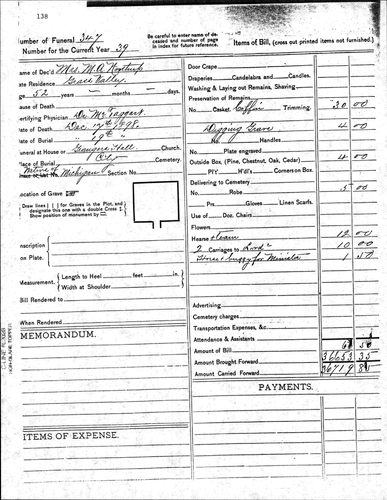 138
Number of Funeral 347
Number for the Current Year 39
Be carefully to enter name of deceased and number of page in index for future reference.
Items of Bill, (cross out printed items not furnished.)
Name of Dec'd Mrs. M. A. Northrup
Late Residence Grass Valley
Age 52 years - months - days.
Cause of Death
Certifying Physician Dr. McTaggart
Date of Death Dec 17th 1898.
Date of Burial 19th "
Funeral at House or Grangers Hall Church.
Place of Burial City Cemetery.
Native of Michigan
Lot No. Section No.
Location of Grave
Draw lines for Graves in the Plot, and designate this one with a double Cross
Show position of monument by
Inscription
on Plate.
Measurement. Length to Heel feet in.
Width at Shoulder
Bill Rendered to
When Rendered
MEMORANDUM.
ITEMS OF EXPENSE.
Door Crape
Draperies Candelabra and Candles.
Washing & Laying out Remains, Shaving
Preservation of Remains
No. Casket, Coffin Trimming. 30 00
Digging Grave 4 00
No. Handles
Plate engraved
Outside Box, (Pine, Chestnut, Oak, Cedar) 4 00
P'l'f H'd'l's Corners on Box.
Delivering to Cemetery 5 00
No. Robe
Prs. Gloves Linen Scarfs.
Use of Doz. Chairs
Flowers
Hearse & team 12 00
2 Carriages to 10 00
Horse & Buggy for 1 50
Advertising
Cemetery charges
Transportation Expenses, &c.
Attendance & Assistants
Amount of Bill 66 50
Amount Brought Forward 36653 35
Amount Carried Forward 36719 85
PAYMENTS.